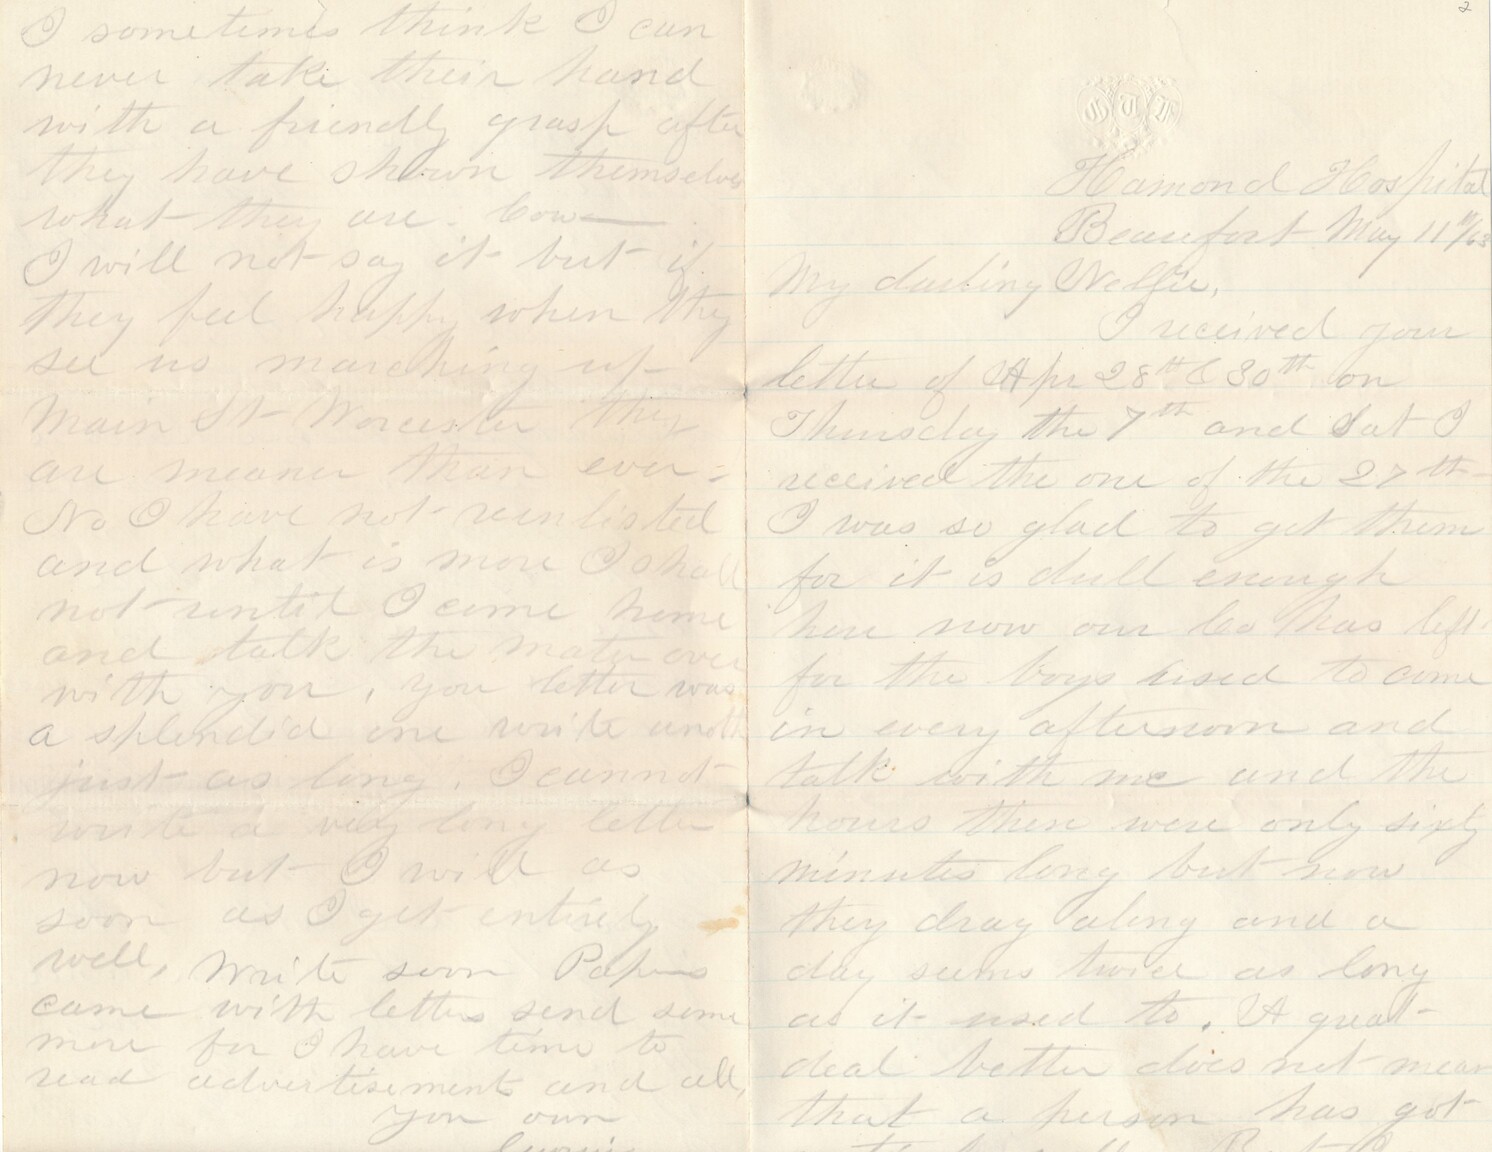 2
Hamond Hospital
Beaufort May 11th/63
My darling Nellie,
I received your
letter of Apr 28th & 30th on
Thursday the 7th and Sat I
received the one of the 27th
I was so glad to get them
for it is dull enough
here now our Co has left
for the boys used to come
in every afternoon and
talk with me and the
hours then were only sixty
minutes long but now
they drag along and a
day seems twice as long
as it used to. A great
deal better does not mean
that a person has got
I sometimes think I can
never take their hand
with a friendly grasp after
they have shown themselves
what they are. Cow—
I will not say it but if
they feel happy when they
see us marching up
Main St Worcester they
are meaner than ever.
No I have not reenlisted
and what is more I shall
not until I come home
and talk the mater over
with you, you letter was
a splendid one write anoth
just as long. I cannot
write a very long letter
now but I will as
soon as I get entirely
well, Write soon Papers
came with letters send some
more for I have time to
read advertisements and all,
You own